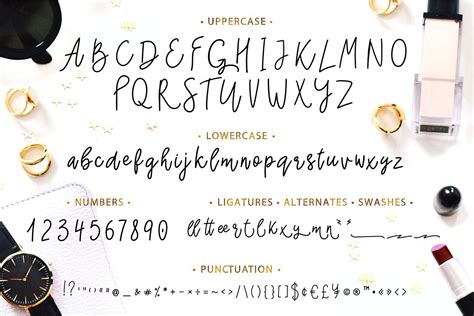 • UPPERCASE •
ABCDEFGHIJKLMNO
PQRSTUVWXYZ
• LOWERCASE •
abcdefghijklmnopqrstuvwxyz
• NUMBERS •
1234567890
• LIGATURES • ALTERNATES • SWASHES •
• PUNCTUATION •